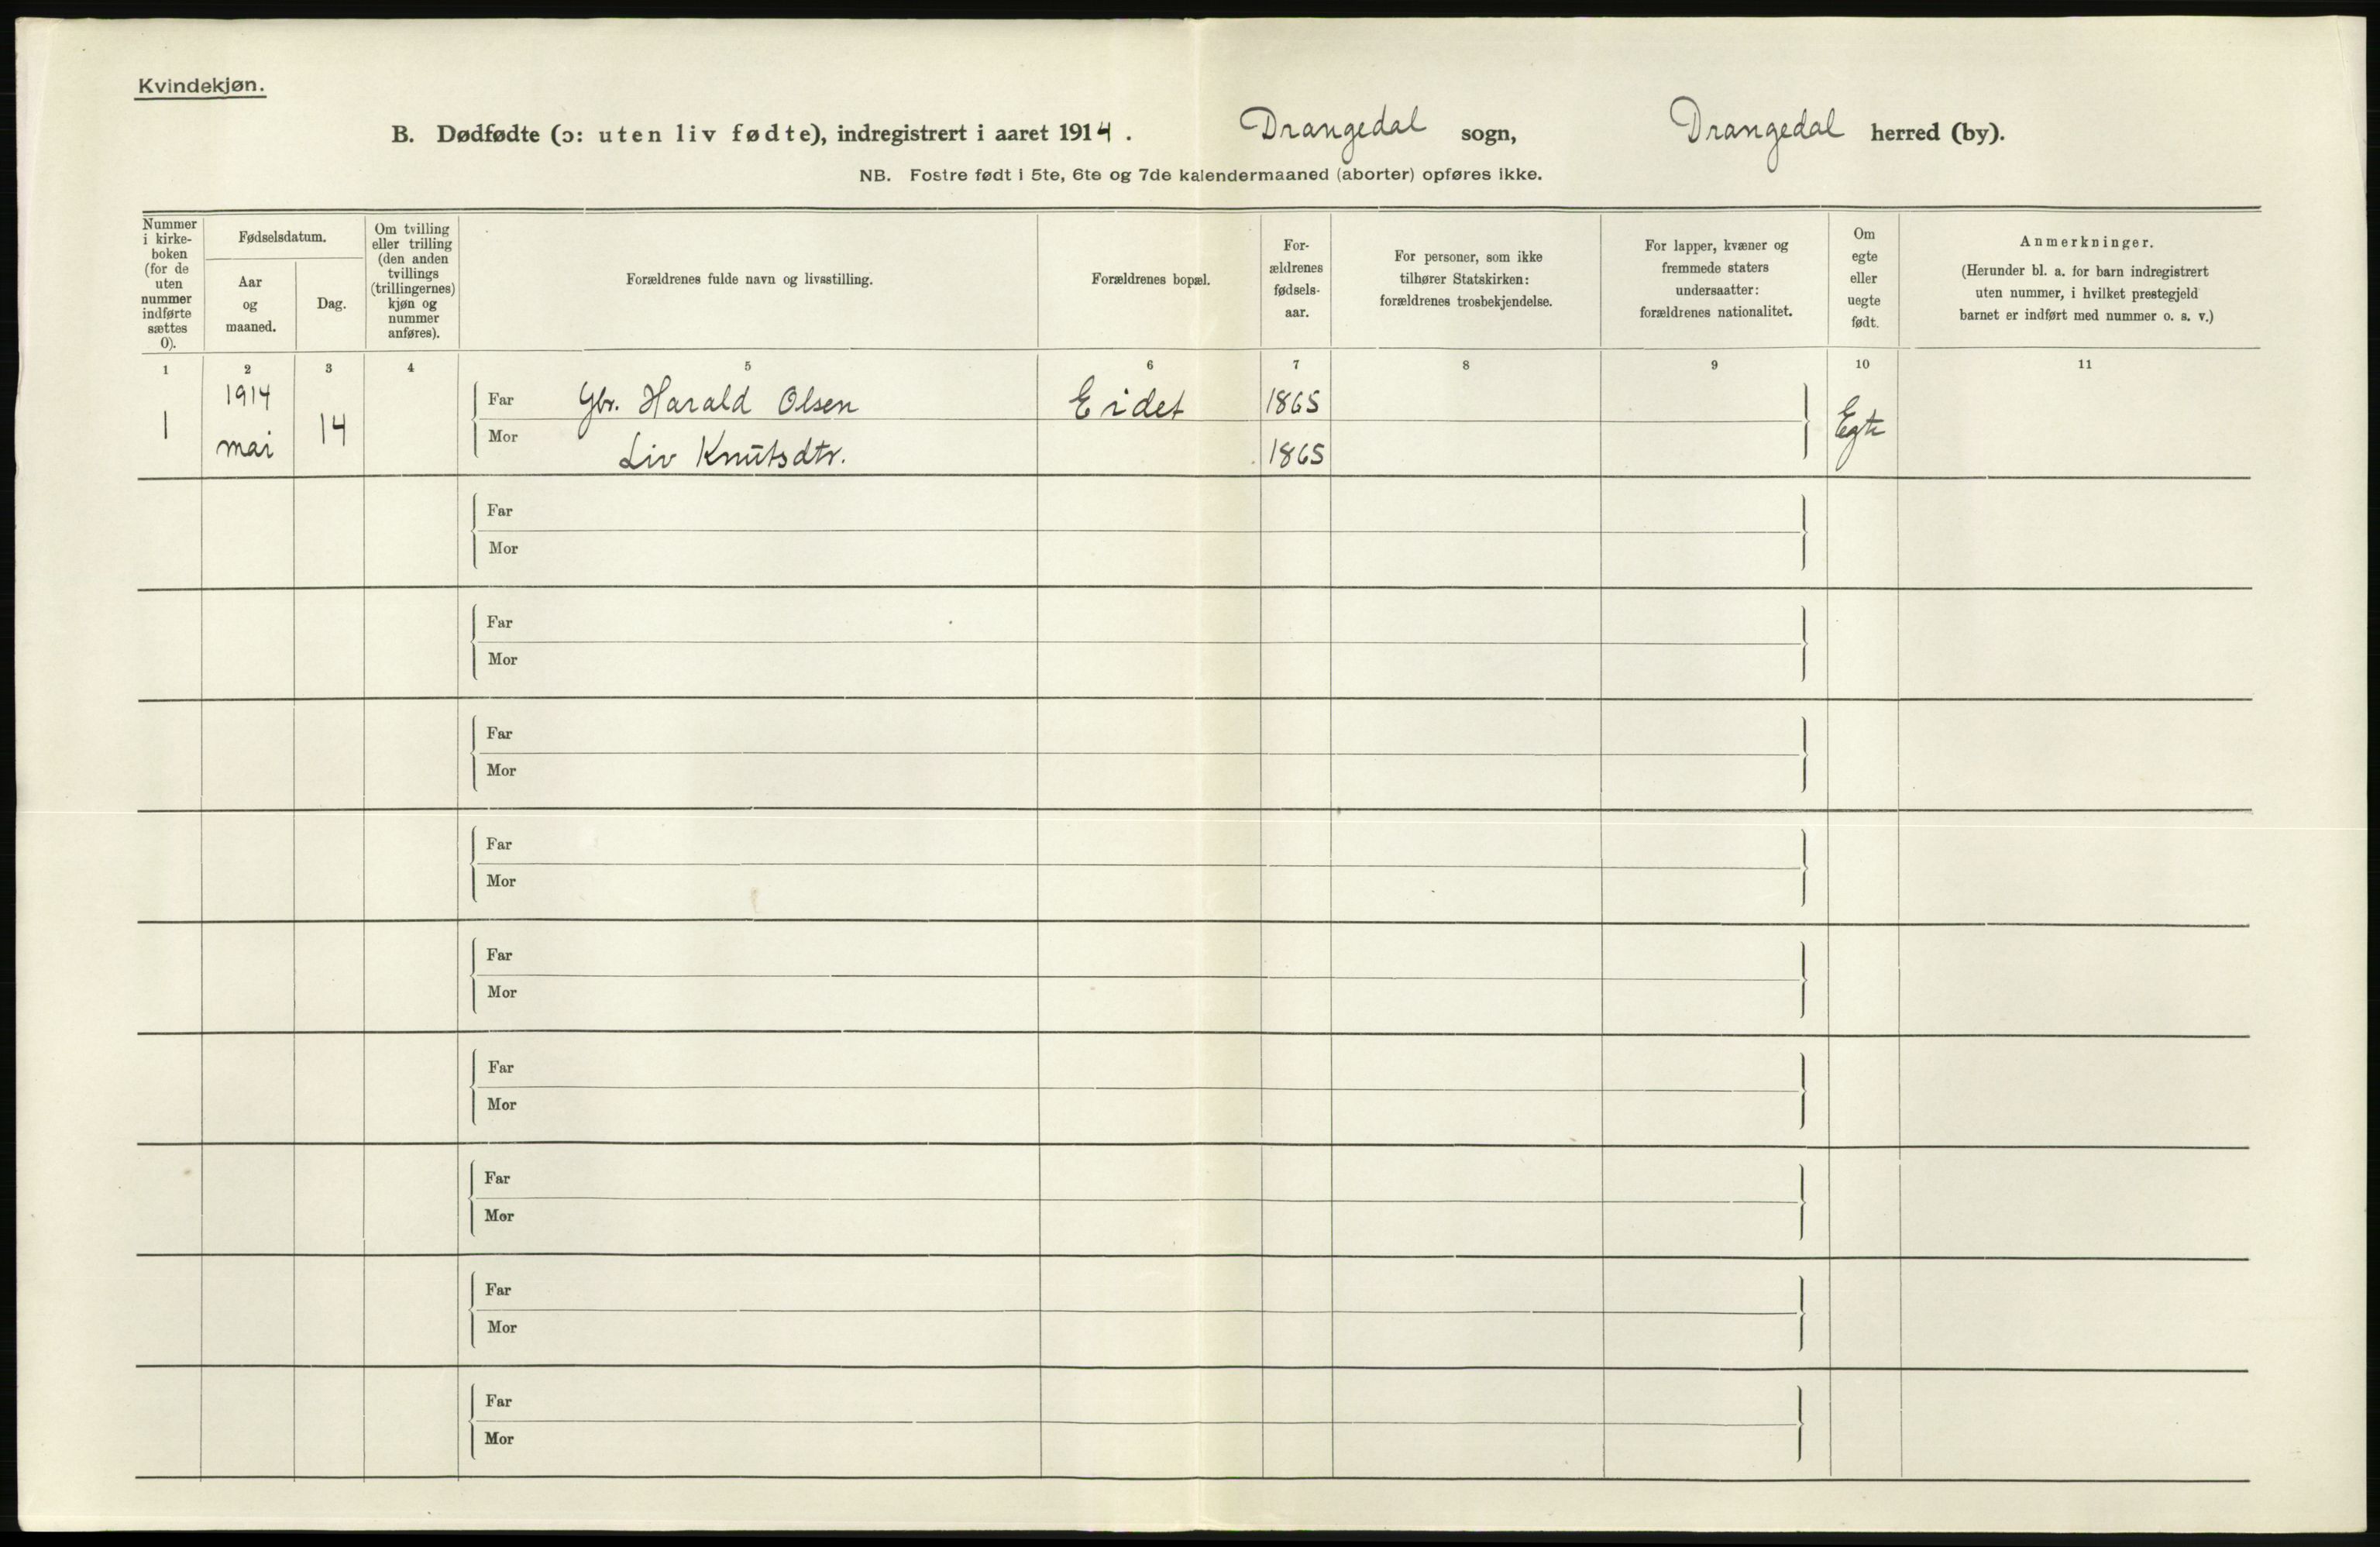 Kvindekjøn.
B. Dødfødte (ɔ: uten liv fødte), indregistrert i aaret 1914. Drangedal sogn, Drangedal herred (by).
NB. Fostre født i 5te, 6te og 7de kalendermaaned (aborter) opføres ikke.
Nummer
i kirke-
boken
(for de
uten
nummer
indførte
sættes
0).
Fødselsdatum.
Aar
og
maaned.
Dag.
Om tvilling
eller trilling
(den anden
tvillings
(trillingernes)
kjøn og
nummer
anføres).
Forældrenes fulde navn og livsstilling.
Forældrenes bopæl.
For-
ældrenes
fødsels-
aar.
For personer, som ikke
tilhører Statskirken:
forældrenes trosbekjendelse.
For lapper, kvæner og
fremmede staters
undersaatter:
forældrenes nationalitet.
Om
egte
eller
uegte
født.
Anmerkninger.
(Herunder bl. a. for barn indregistrert
uten nummer, i hvilket prestegjeld
barnet er indført med nummer o. s. v.)
1 2 3 4 5 6 7 8 9 10 11
1 1914 mai 14
Far Gbr. Harald Olsen Eidet 1865 Egte
Mor Liv Knutsdtr. 1865
Far
Mor
Far
Mor
Far
Mor
Far
Mor
Far
Mor
Far
Mor
Far
Mor
Far
Mor
Far
Mor